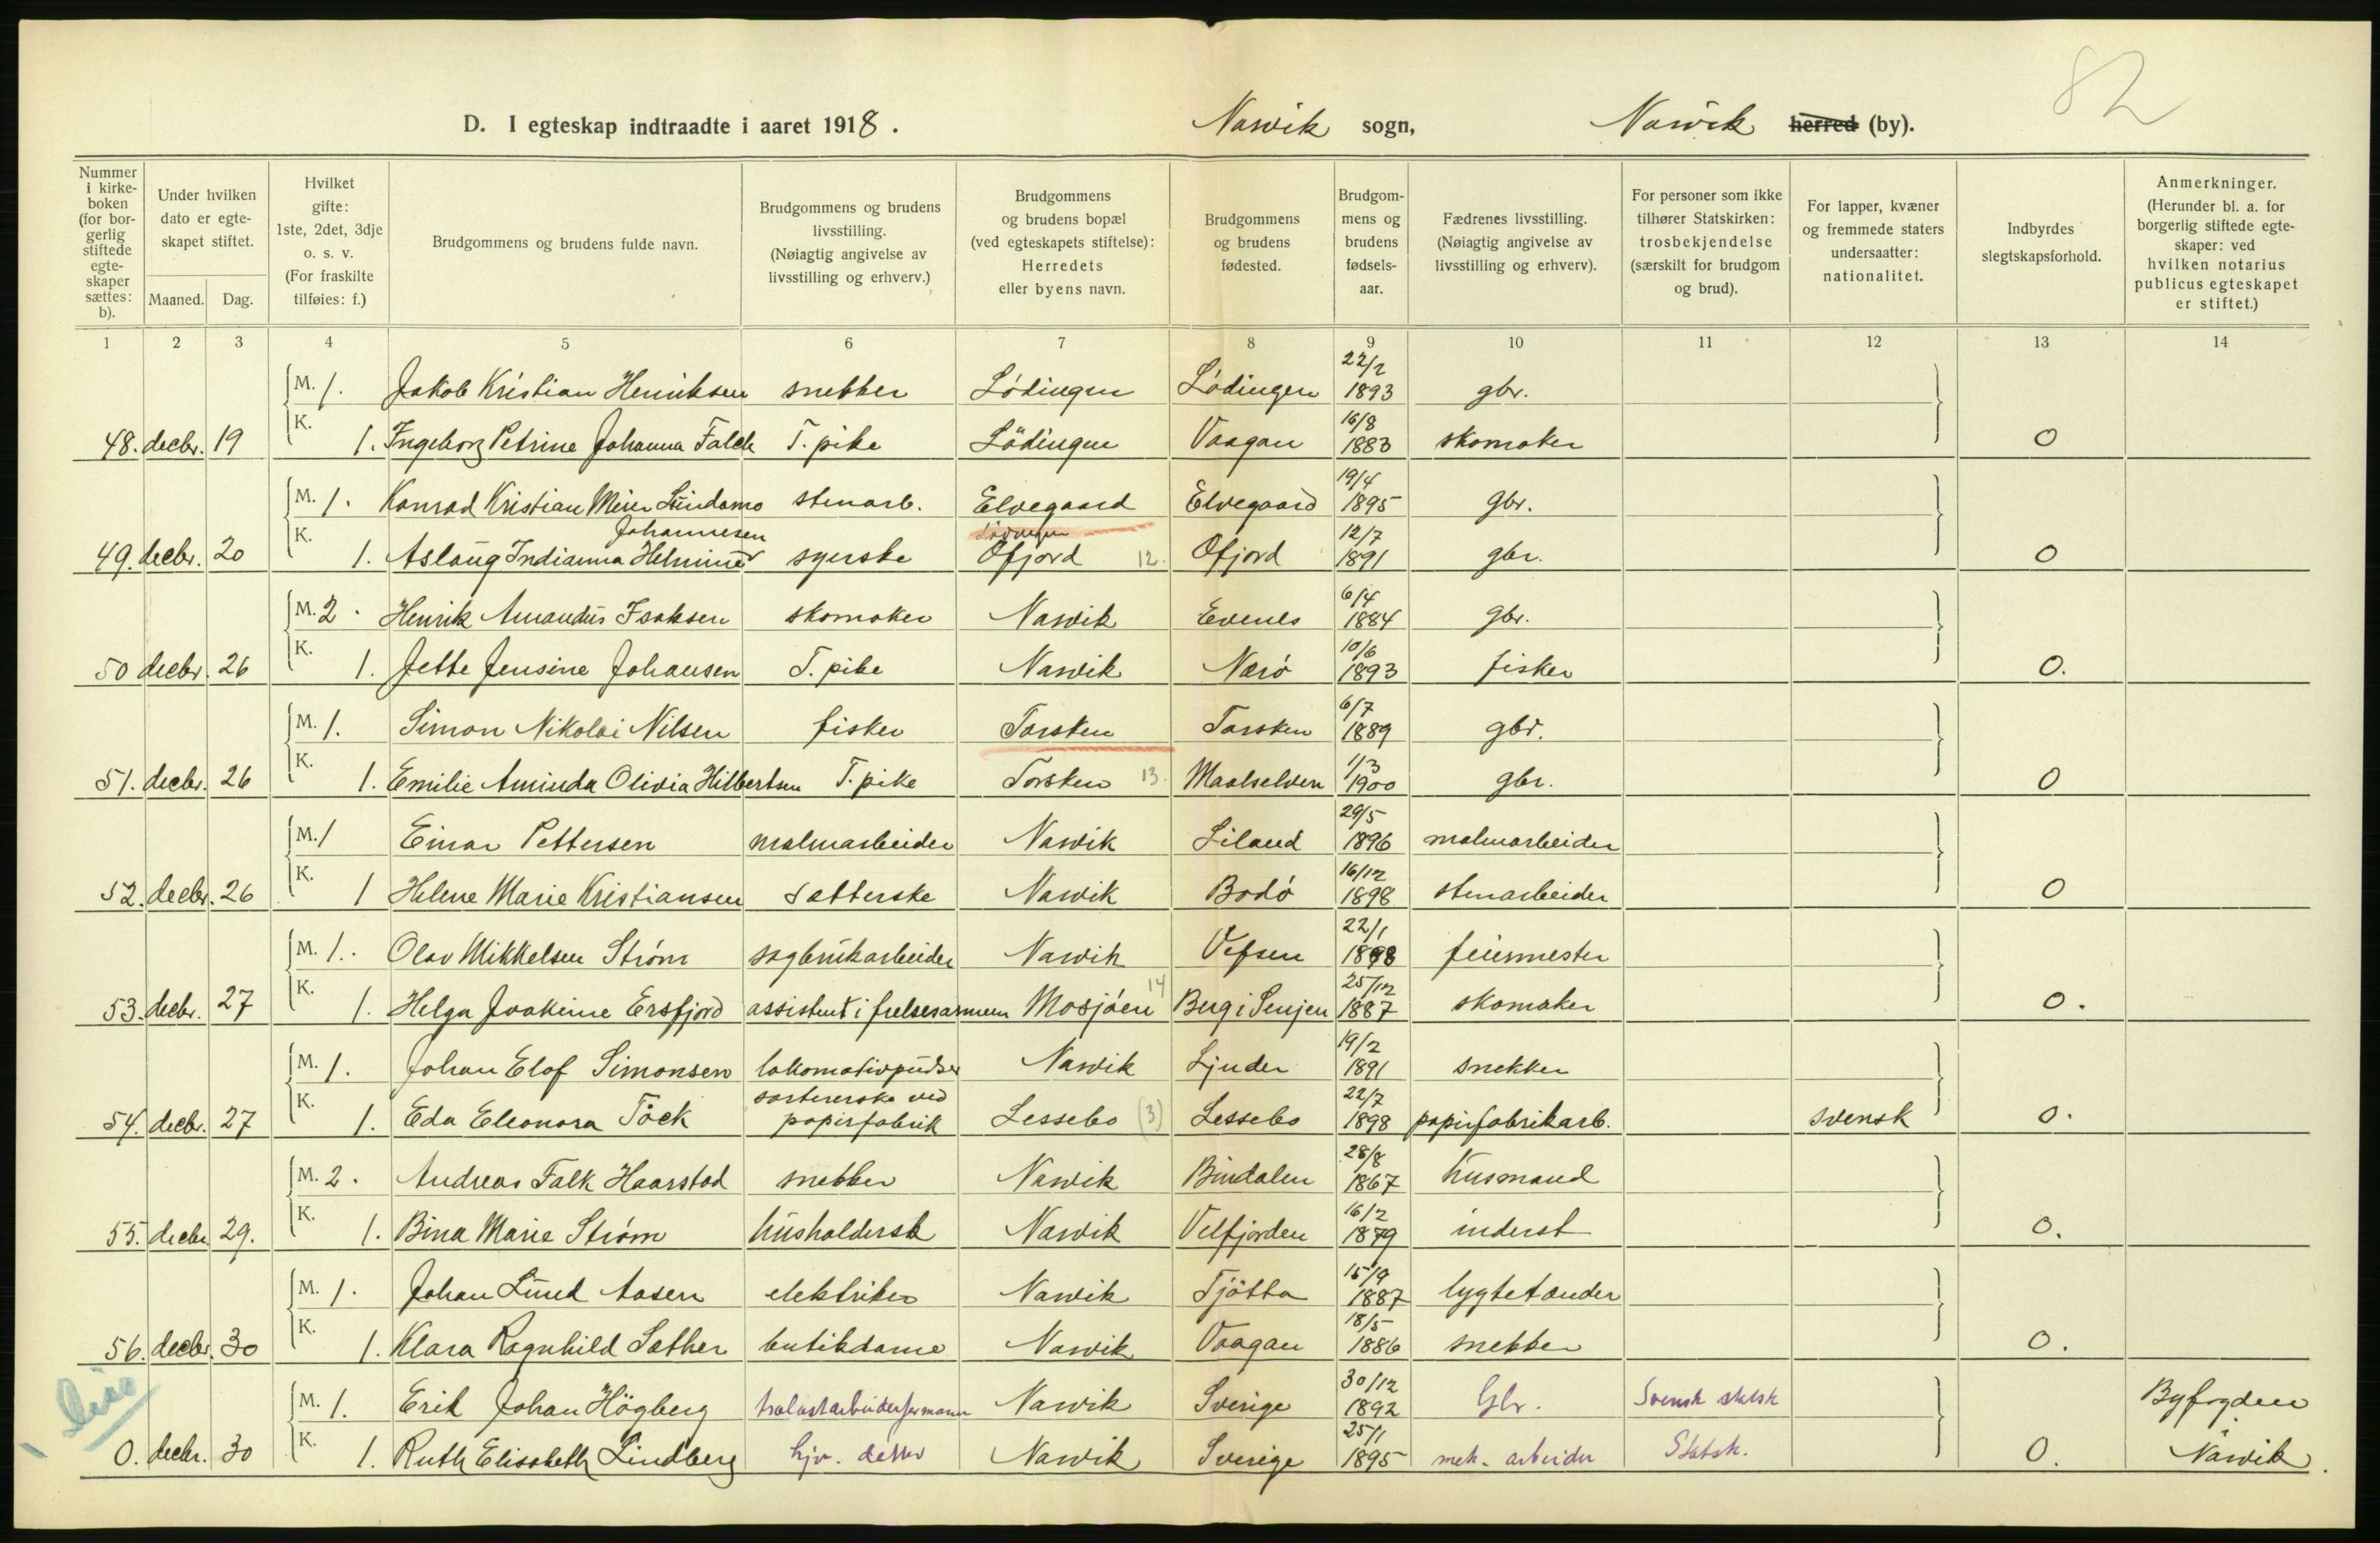 82
D. I egteskap indtraadte i aaret 1918. Narvik sogn, Narvik herred (by).
Nummer i kirkeboken (for borgerlig stiftede egteskaper sættes: b). Under hvilken dato er egteskapet stiftet. Maaned. Dag. Hvilket gifte: 1ste, 2det, 3dje o. s. v. (For fraskilte tilføies: f.) Brudgommens og brudens fulde navn. Brudgommens og brudens livsstilling. (Nøiagtig angivelse av livsstilling og erhverv.) Brudgommens og brudens bopæl (ved egteskapets stiftelse): Herredets eller byens navn. Brudgommens og brudens fødested. Brudgommens og brudens fødselsaar. Fædrenes livsstilling. (Nøiagtig angivelse av livsstilling og erhverv). For personer som ikke tilhører Statskirken: trosbekjendelse (særskilt for brudgom og brud). For lapper, kvæner og fremmede staters undersaatter: nationalitet. Indbyrdes slegtskapsforhold. Anmerkninger. (Herunder bl. a. for borgerlig stiftede egteskaper: ved hvilken notarius publicus egteskapet er stiftet.)
1 2 3 4 5 6 7 8 9 10 11 12 13 14
M. 1. Jakob Kristian Henriksen snekker Lödingen Lödingen 22/2 1893 gbr.
48. decbr. 19 K. 1. Ingeborg Petrine Johanna Falck T. pike Lödingen Vaagan 16/8 1883 skomaker 0
M. 1. Konrad Kristian Meier Lündamo stenarb. Elvegaard Elvegaard 19/4 1895 gbr.
Johannesen
49. decbr. 20 K. 1. Aslaug Indianna Helmine syerske Ofjord 12. Ofjord 12/7 1891 gbr. 0
M. 2. Henrik Amandus Isaksen skomaker Narvik Evenes 6/4 1884 gbr.
50 decbr. 26 K. 1. Jette Jensine Johansen T. pike Narvik Nærö 10/6 1893 fisker 0.
M. 1. Simon Nikolai Nilsen fisker Torsken Torsken 6/7 1889 gbr.
51. decbr. 26 K. 1. Emilie Aminda Olivia Hilbertsen T. pike Torsken 13. Maalselven 1/3 1900 gbr. 0
M. 1 Einar Pettersen malmarbeider Narvik Liland 29/5 1896 malmarbeider
52. decbr. 26 K. 1 Helene Marie Kristiansen sætterske Narvik Bodö 16/12 1898 stenarbeider 0
M. 1. Olav Mikkelsen Strøm sagbrukarbeider Narvik Vefsen 22/1 1898 feiermester
53. decbr. 27 K. 1. Helga Joakime Ersfjord assistent i frelsesarmeen Mosjöen 14 Berg i Senjen 25/12 1887 skomaker 0.
M. 1. Johan Elof Simonsen lokomotivpudser Narvik Ljuder 19/2 1891 snekker
54. decbr. 27 K. 1. Eda Eleonora Töck sortererske ved papirfabrik Lessebo (3) Lessebo 22/7 1898 papirfabrikarb. svensk 0.
M. 2. Andreas Falk Haarstad snekker Narvik Bindalen 28/8 1867 husmand
55. decbr 29. K. 1. Bina Marie Strøm husholdersk Narvik Velfjorden 16/2 1879 inderst 0.
M. 1. Johan Lund Aasen elektriker Narvik Tjötta 15/9 1887 lygtetænder
56. decbr. 30 K. 1. Klara Ragnhild Sæther butikdame Narvik Vaagan 18/5 1886 snekker 0.
M. 1. Erik Johan Högberg Narvik Sverige 30/12 1892 Gbr. Svensk statsk Byfogden
0. decbr. 30 K. 1. Ruth Elisabeth Lindberg hjv. datter Narvik Sverige 25/1 1895 mek. arbeider Statsk. 0. Narvik.